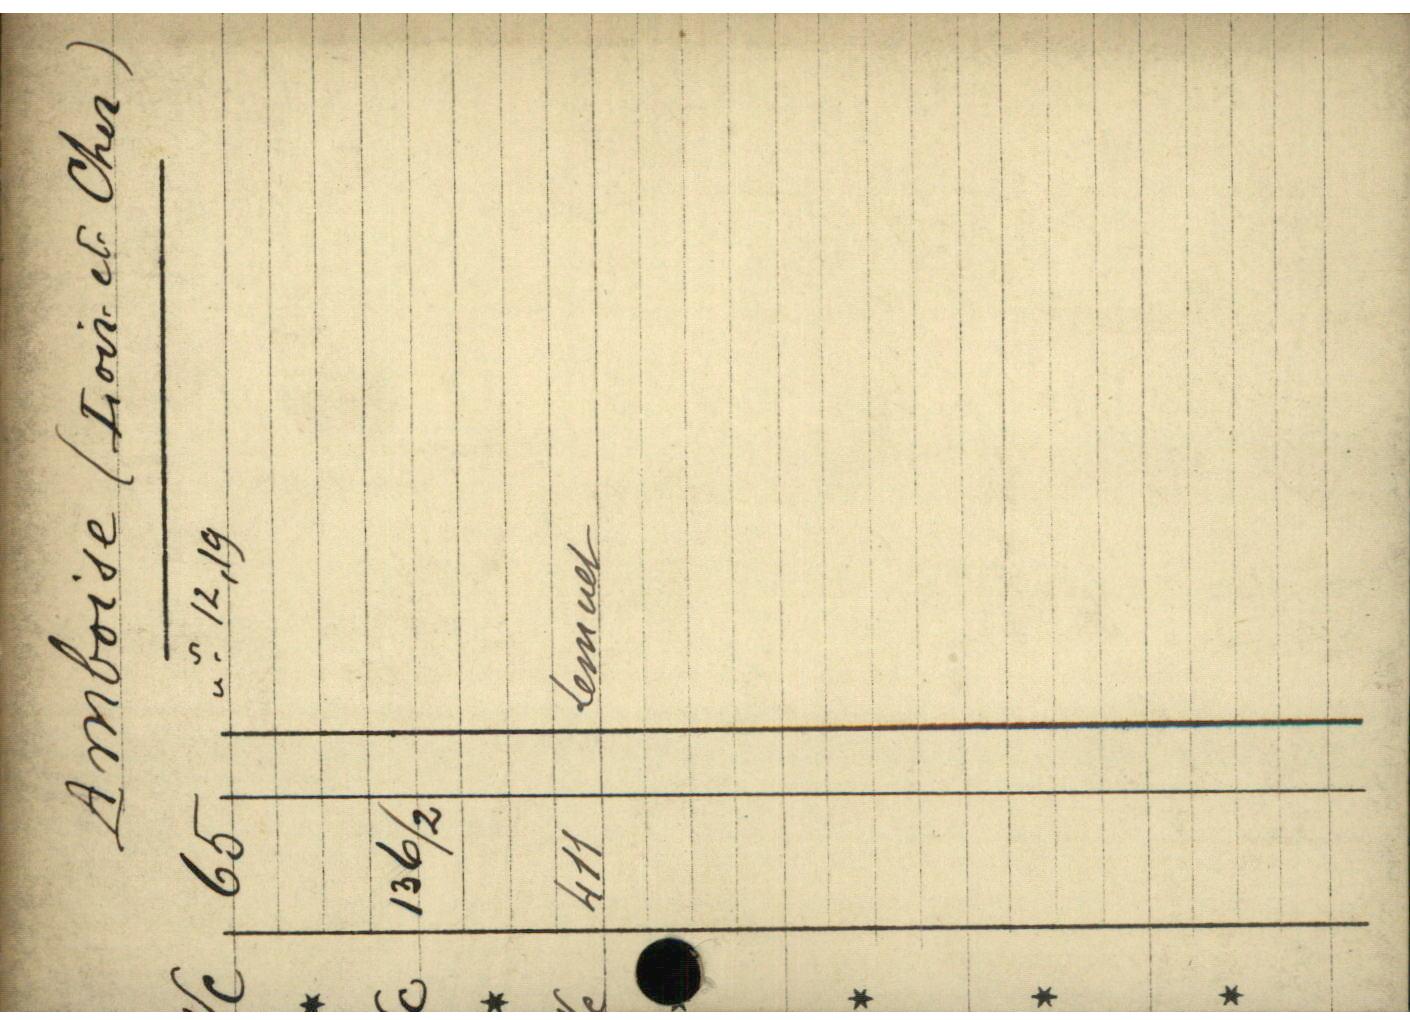 Amboise (Loir-et-Cher)
Vc 65 nos 12,19
Vc 136/2
Vc 411 Lemuet